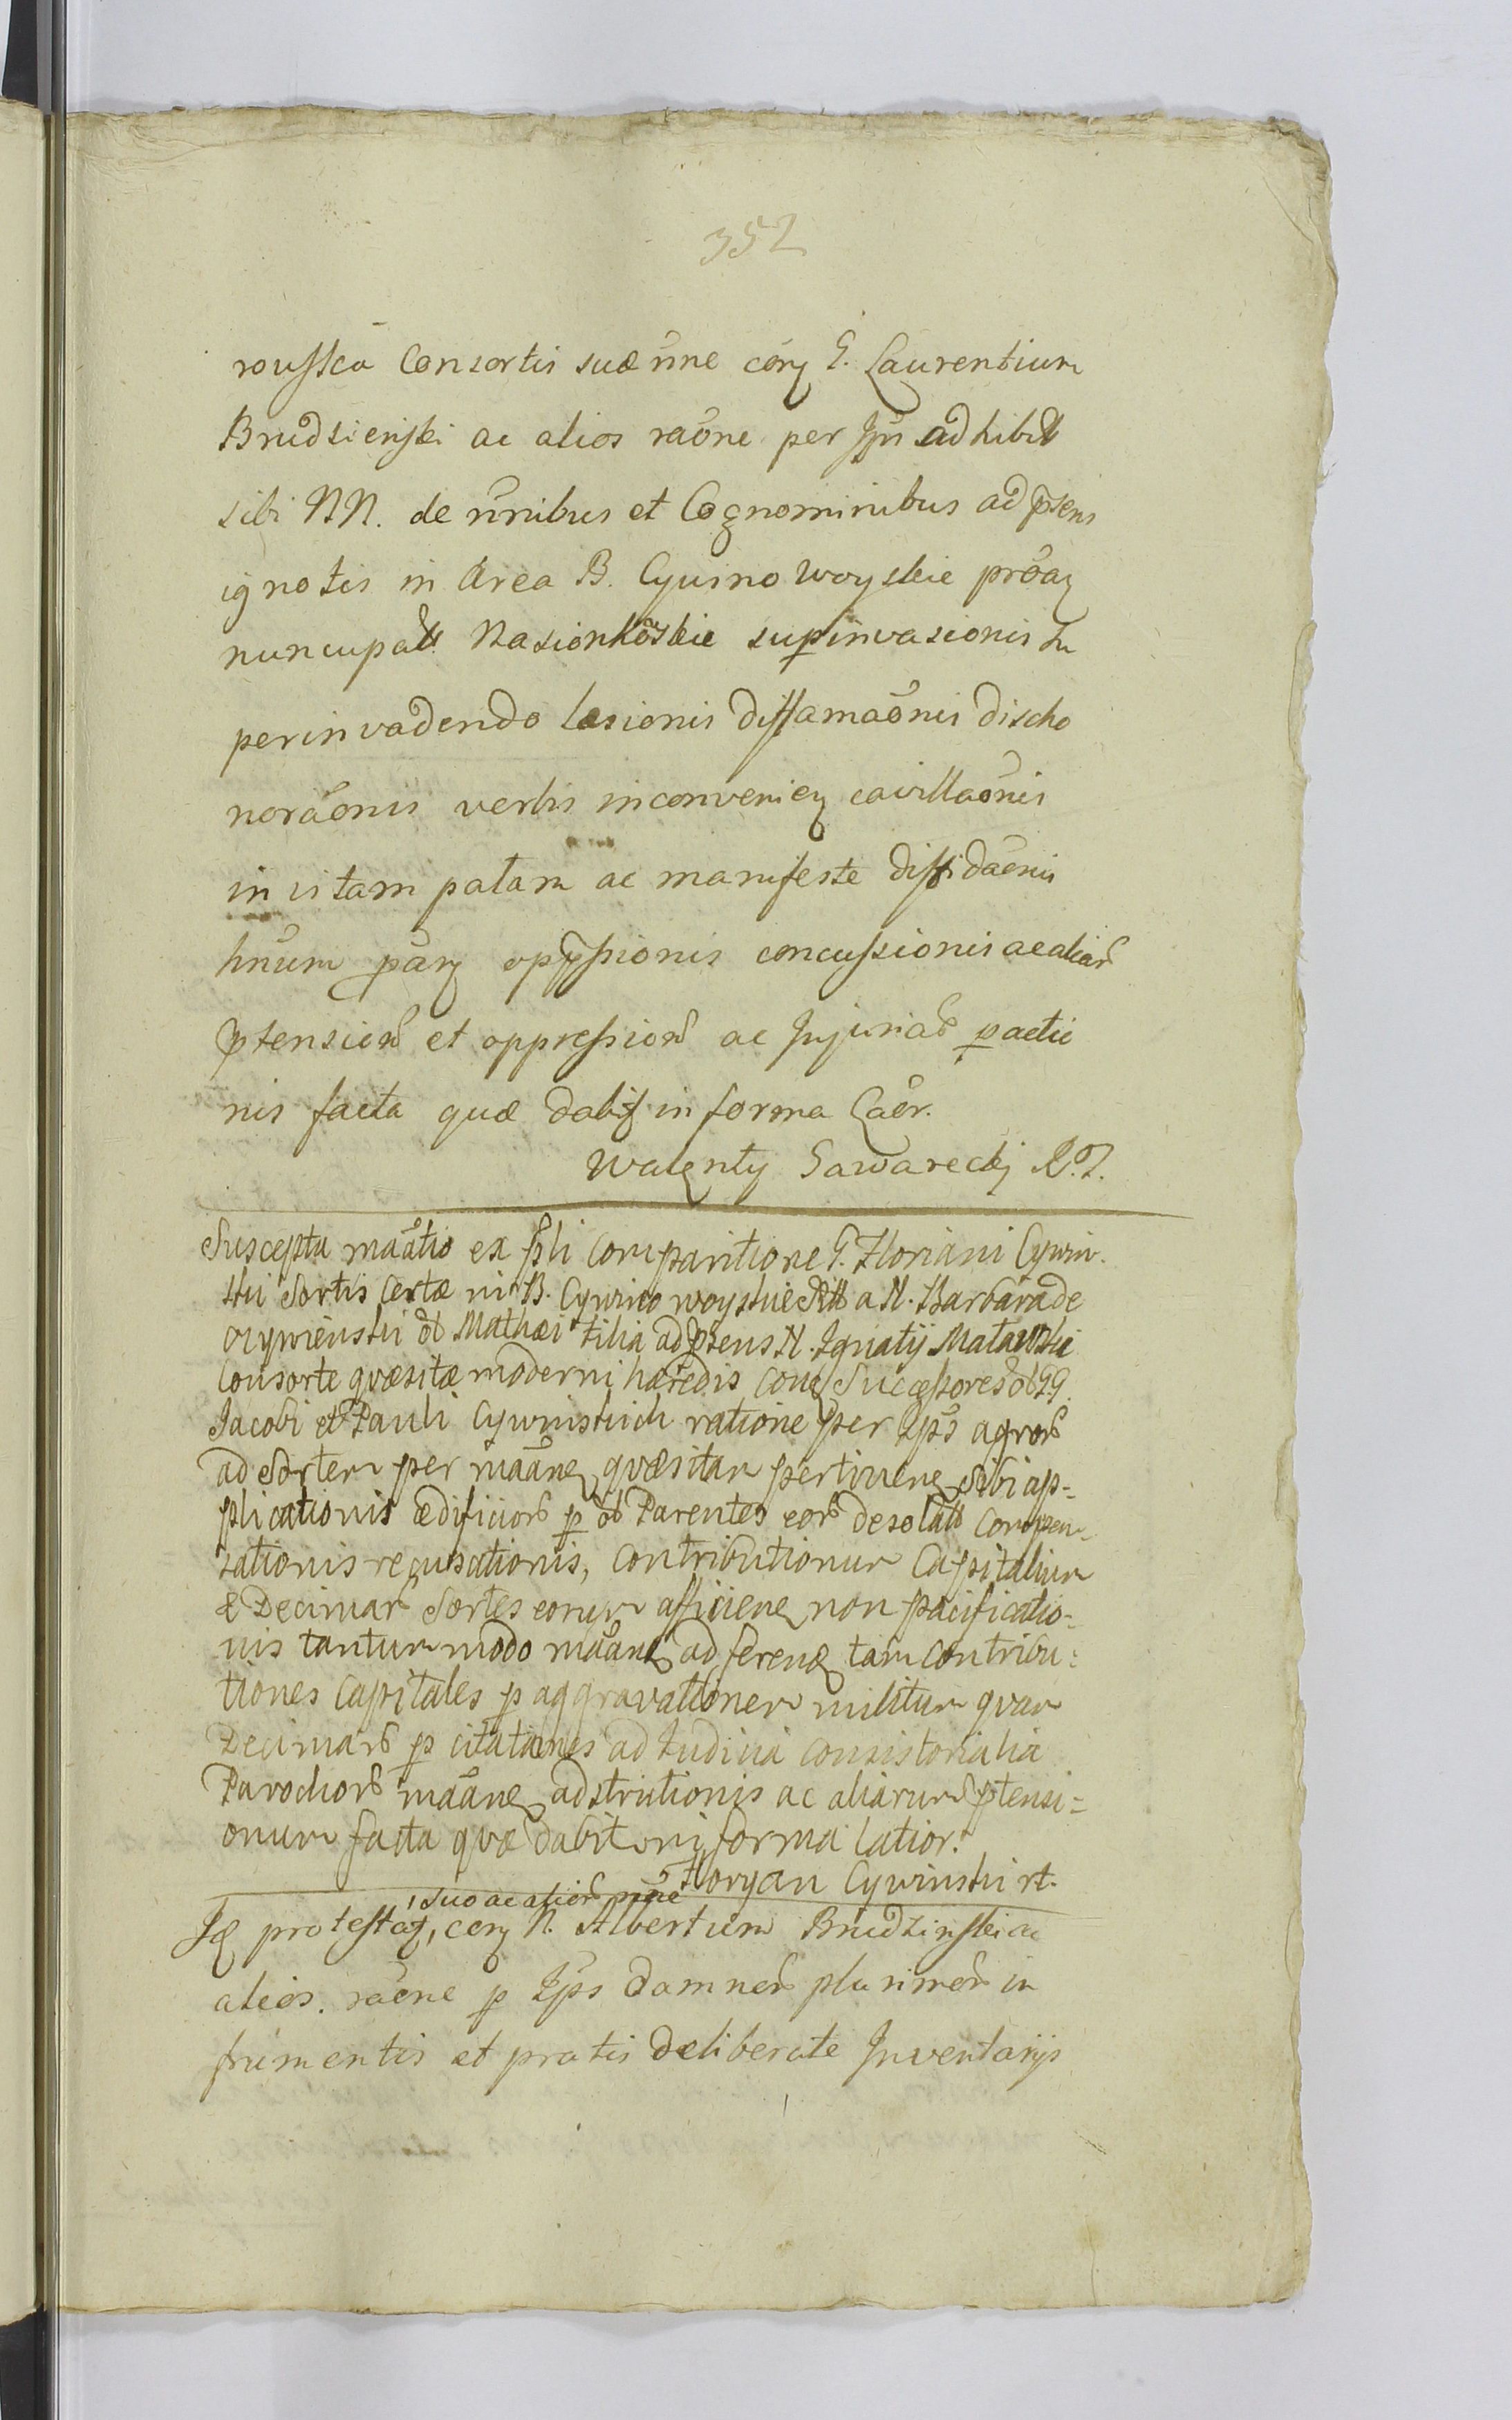 352
roussca Consortis suæ nne corz G. Laurentium
Brudzienski ac alios raone per Ipm adhibit
sibi NN. de nnibus et Cognominibus ad psens
ignotis in Area B. Cywino woyskie proaz
nuncupatt Nasionkoskie supinvasionis in
perinvadendo læsionis diffamaonis discho
noraonis verbis inconveniez cavillaonis
in vitam palam ac manifeste diffidaonis
hnum parz oppssionis concussionis ac aliar
ptension et oppression ac Injuriar pactio
nis facta quæ dabit in forma Laor.
Walenty Sawareckj R.T.
Suscepta maatio ex psli Comparitione G. Floriani Cywin-
ski Sortis certæ in B. Cywino woyskie a N. Barbara de
Cywienski ol Mathæi filia ad psens N. Ignatij Matawski
Consorte quæsitæ moderni hæredis conz Successores ol GG.
Jacobi et Pauli Cywinskich ratione per Ips agror
ad Sortem per maanz quæsitam pertinenz Sibi ap-
plicationis ædificior p ol Parentes eor desolatt compen-
sationis recusationis, Contributionum Capitalium
& Decimar Sortes eorum afficienz non pacificatio-
nis tantummodo maanz ad ferenz tam contribu-
tiones Capitales p aggravationem militum quam
Decimar p citationes ad Judicia Consistorialia
Parochor maanz adstrictionis ac aliarum ptensi-
onum facta quæ dabit in forma latior.
Floryan Cywinski rt.
suo ac alior nne
Iz protestatz, corz N. Albertum Brudzinski ac
alios. raone p Ips damnor plurimor in
frumentis et pratis deliberate Inventarijs